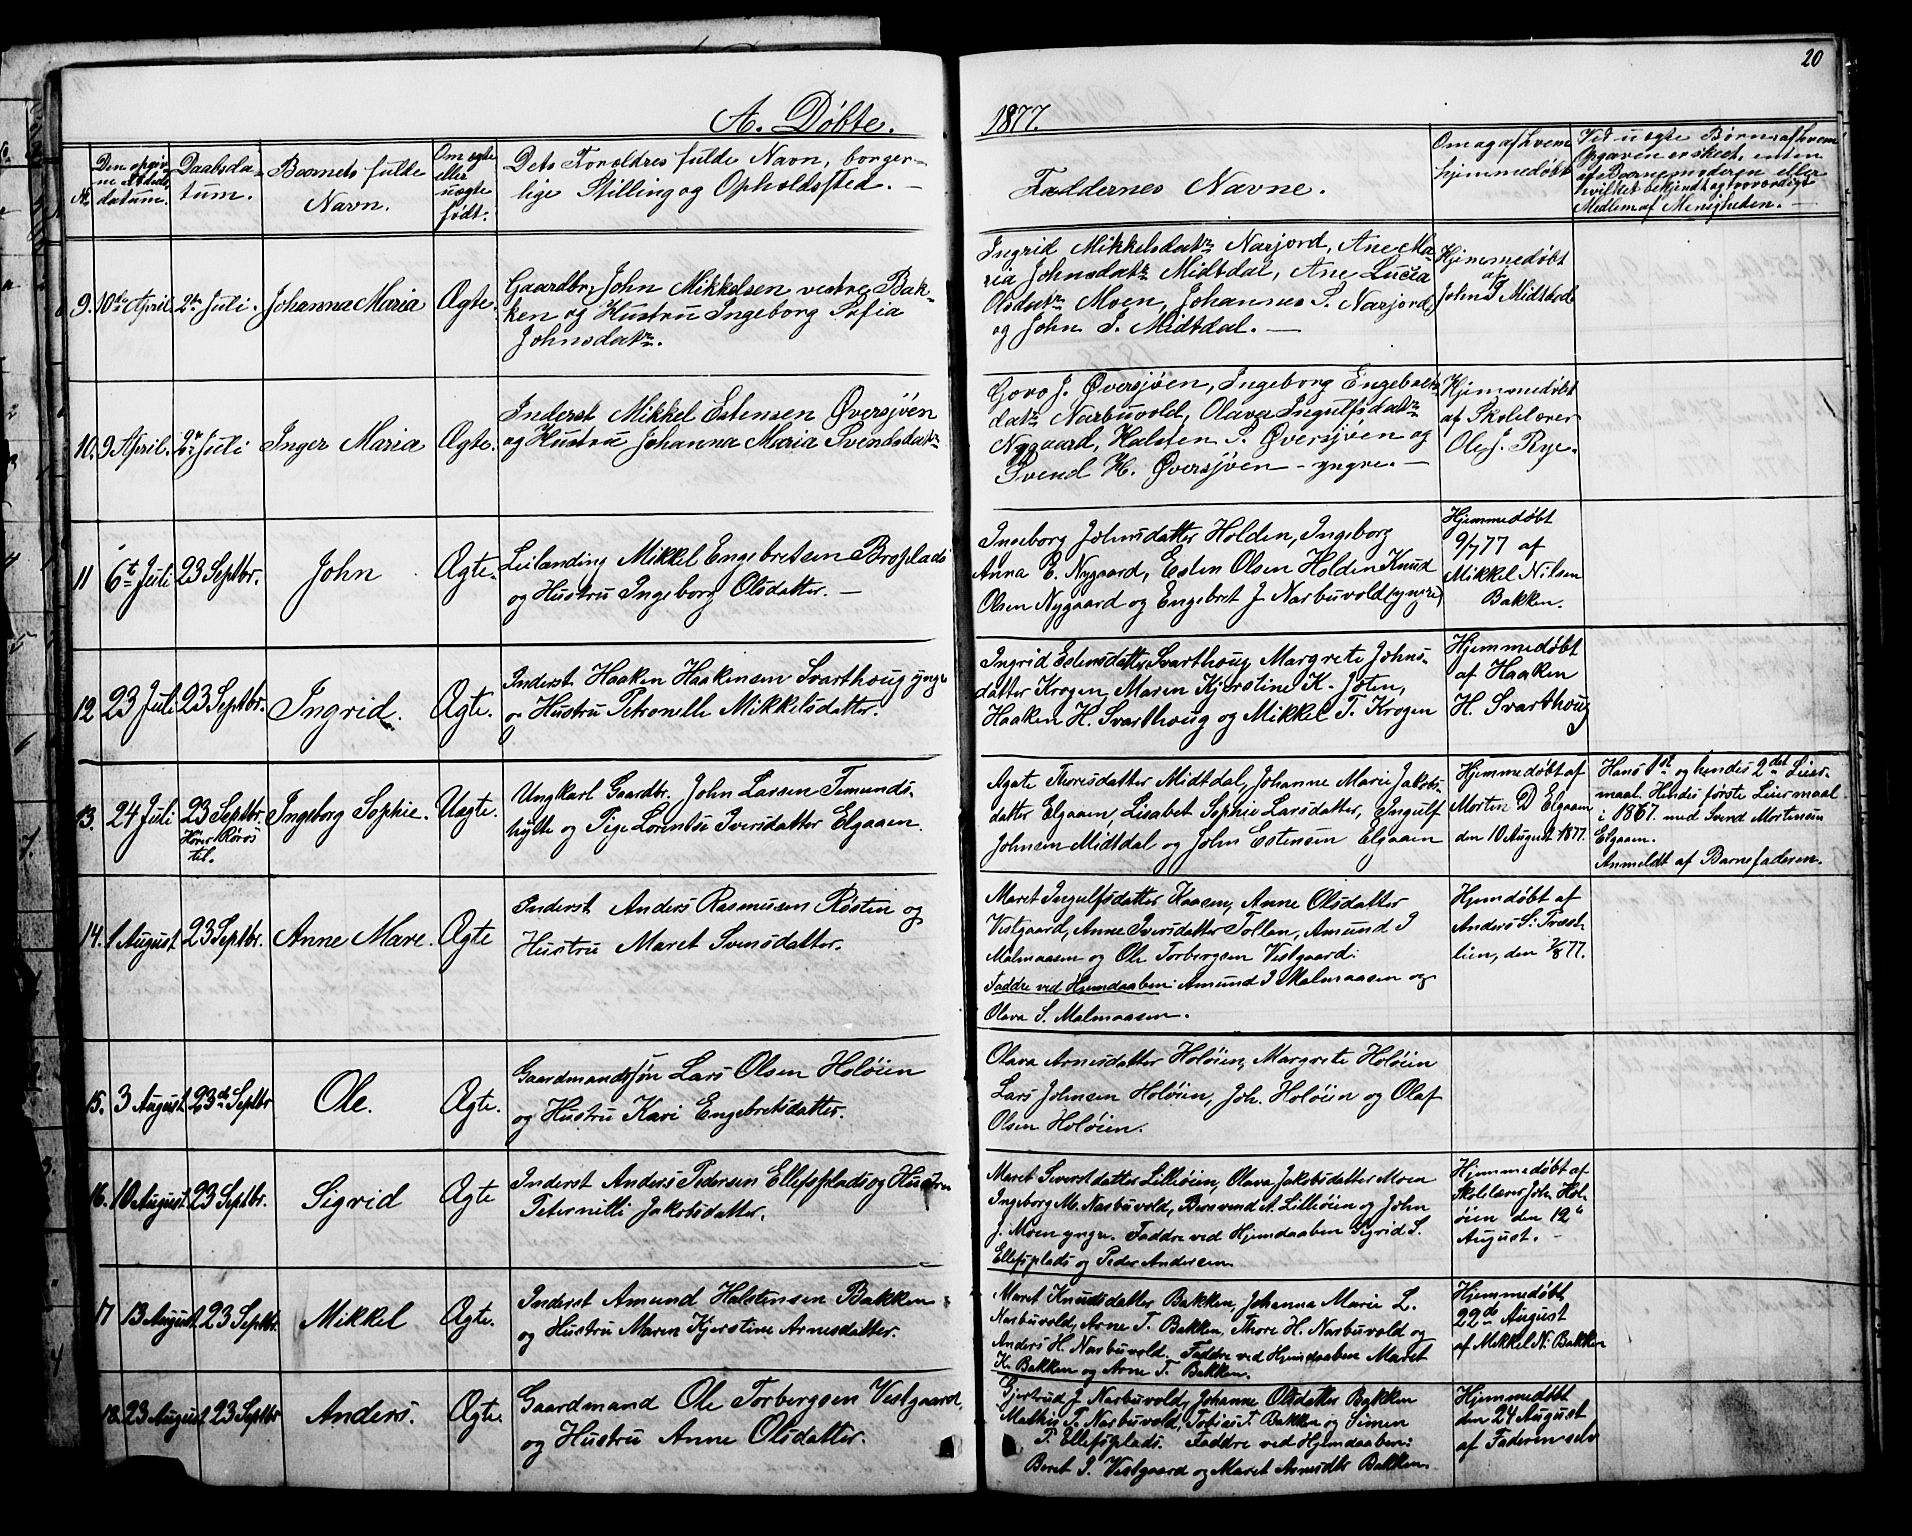 20
A. Døbte.
1877.
№
Den opgiv-
ne Fødsels-
datum.
Daabsda-
tum.
Barnets fulde
Navn.
Om ægte
eller
uægte
født.
Dets Forældres fulde Navn, borger-
lige Stilling og Opholdssted. —
Faddernes Navne.
Om og af hvem
hjemmedøbt
Ved uægte Børn, af hvem
Opgaven er skeet, enten
af Barnemoderen eller
hvilket bekjendt og troværdigt
Medlem af Menigheden. —
9. 10de April. 2den Juli. Johanna Maria Ægte.
Gaardbr. John Mikkelsen vestre Bak-
ken og Hustru Ingeborg Sofia
Johnsdatr.
Ingrid Mikkelsdatr Narjord, Ane Ma-
ria Johnsdatr Midtdal, Ane Lucia
Olsdatr Moen, Johannes S. Narjord,
og John J. Midtdal. —
Hjemmedøbt
af
John J Midtdal
10. 9 April. 2den Juli Inger Maria Ægte.
Inderst Mikkel Estensen Øversjøen
og Hustru Johanna Maria Svendsdatr
Goro J. Øversjøen, Ingeborg Engebrets
datr Narbuvold, Olava Ingulfsdatr
Nygaard, Halsten S. Øversjøen og
Svend H. Øversjøen - yngre. —
Hjemmedøbt
af Skolelærer
Ole J. Rye.
11 6t Juli 23 Septbr. John Ægte.
Leilænding Mikkel Engebretsen Broplads
og Hustru Ingeborg Olsdatter. —
Ingeborg Johnsdatter Holden, Ingeborg
Anna E. Nygaard, Esten Olsen Holden Knud
Olsen Nygaard og Engebret J Narbuvold (yngre)
Hjemmedøbt
9/7 77 af
Mikkel Nilsen
Bakken.
12 23 Juli 23 Septbr. Ingrid. Ægte.
Inderst Haaken Haakensen Svarthoug yngr
og Hustru Petronelle Mikkelsdatter.
Ingrid Estensdatter Svarthoug Margrete Johns-
datter Krogen, Maren Kjerstine K. Joten,
Haaken H. Svarthoug og Mikkel T. Krogen
Hjemmedøbt
af Haaken
H. Svarthoug
13. 24 Juli 23 Septbr. Ingeborg Sophie. Uægte.
Hører Røros
til.
Ungkarl Gaardbr. John Larsen Femunds-
hytte og Pige Lorentse Iversdatter Elgaaen.
Agate Thoresdatter Midtdal, Johanne Marie Jakobs-
datter Elgaaen, Lisabet Sophie Larsdatter, Ingulf
Johnsen Midtdal og John Estensen Elgaaen
Hjemmedøbt af
Morten D Elgaaen
den 10 August 1877.
Hans 1ste og hendes 2det Leier-
maal. Hendes første Leiermaal
i 1867. med Svend Mortensen
Elgaaen.
Anmeldt af Barnefaderen.
14. 1 August 23 Septbr. Anne Mare. Ægte
Inderst Anders Rasmusen Røsten og
Hustru Maret Svensdatter.
Maret Ingulfsdatter Kaasen, Anne Olsdatter
Vestgaard, Anne Iversdatter Tollan, Amund I
Malmaasen og Ole Torbergsen Vestgaard:
Faddre ved Hjemdaaben: Amund I Malmaasen og
Olava S. Malmaasen.
Hjemdøbt af
Anders S. Træst-
lien, den 2/8 77.
15. 3 August 23de Septbr Ole. Ægte.
Gaardmandssøn Lars Olsen Holøien
og Hustru Kari Engebretsdatter.
Olava Arnesdatter Holøien, Margrete Holøien
Lars Johnsen Holøien, Joh. Holøien og Olaf
Olsen Holøien.
16. 10 August 23 Septbr. Sigrid Ægte
Inderst Anders Pedersen Ellefsplads og Hustru
Peternille Jakobsdatter.
Maret Sivertdatter Lilliøien, Olava Jakobsdatter Moen
Ingeborg M. Narbuvold, Bersvend A. Lilliøien og John
J. Moen yngr. Faddre ved Hjemdaaben Sigrid S.
Ellefsplads og Peder Andersen.
Hjemmedøbt af
Skolelærer Joh. Hol-
øien den 12te
August. —
17 13 August 23 Septbr. Mikkel Ægte.
Inderst Amund Halstensen Bakken
og Hustru Maren Kjerstine Arnesdatter.
Maret Knudsdatter Bakken, Johanna Marie L.
Narbuvold, Arne T. Bakken, Thore H. Narbuvold og
Anders H. Narbuvold. Faddre ved Hjemdaaben Maret
K. Bakken og Arne T. Bakken.
Hjemmedøbt
22de August
af Mikkel N. Bakken
18. 23 August 23 Septbr Anders. Ægte.
Gaardmand Ole Torbergsen Vestgaard,
og Hustru Anne Olsdatter.
Gjertrud J Narbuvold, Johanne Olsdatter Bakken
Mathis T. Narbuvold, Tobias T. Bakken og Simen
P. Ellefsplads. Faddre ved Hjemdaaben:
Beret P. Vestgaard og Maret Arnesdtr Bakken.
Hjemmedøbt
den 24 August
af Faderen selv